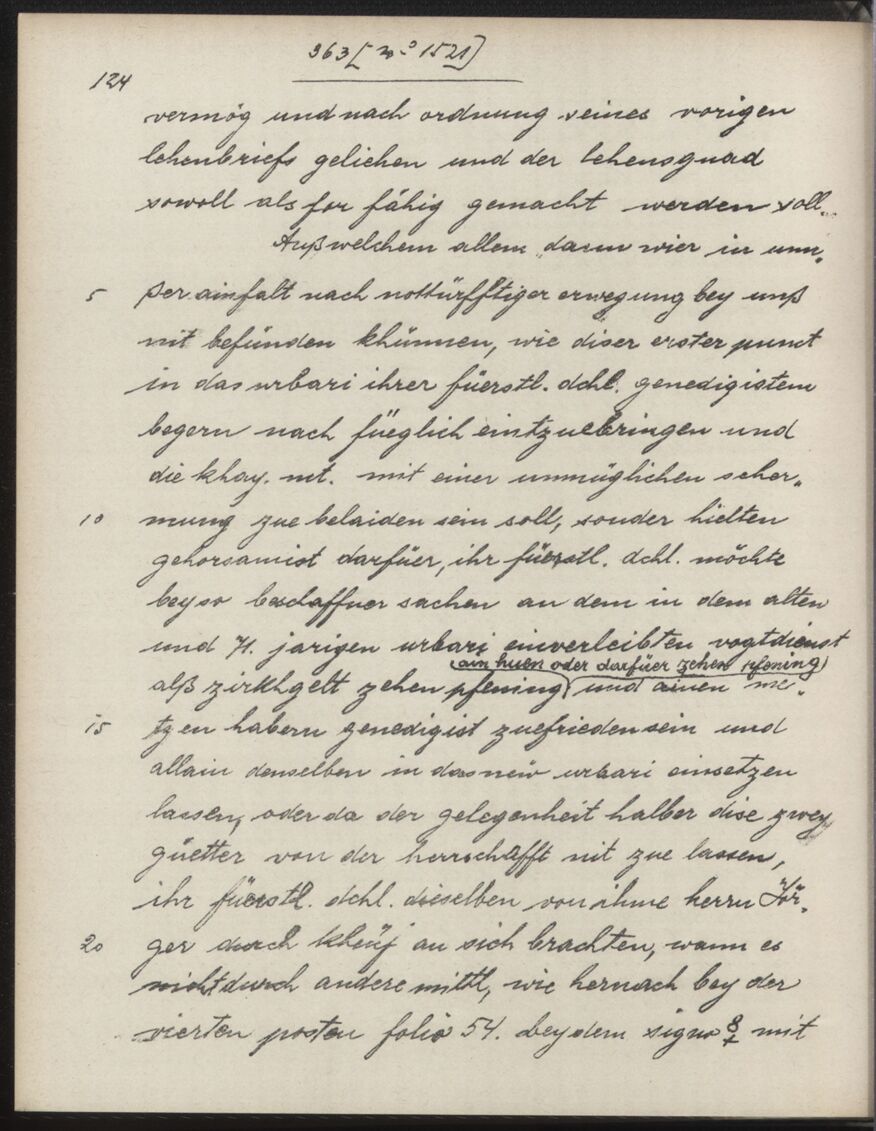 363 [no 1521]
124
vermög und nach ordnung seines vorigen
lehenbriefs geliehen und der lehensgnad
sowoll als for fähig gemacht werden soll.
Außwelchem allem dann wier in unn„
5 ßer ainfalt nach notturfftiger erwegung bey unß
nit befünden khünnen, wie diser erster punct
in das urbari ihrer füerstl. dchl. genedigistem
begern nach füeglich eintzuebringen und
die khay. mt. mit einer unmüglichen scher„
10 mung zue belaiden sein soll, sonder hielten
gehorsamist darfüer, ihr füerstl. dchl. möchte
bey so beschaffner sachen an dem in dem alten
und 71. jarigen urbari einverleibten vogtdienst
(ain huen oder darfüer zehen pfening)
alß zirkhgelt zehen pfening und ainen me„
15 tzen habern genedigist zuefrieden sein und
allain denselben in das new urbari einsetzen
lassen, oder da der gelegenheit halber dise zwey
güetter von der herrschafft nit zue lassen,
ihr füerstl. dchl. dieselben von ihme herrn Jör„
20 ger durch kheuf an sich brachten, wann es
nicht durch andere mittl, wie hernach bey der
vierten posten folio 54. bey dem signo mit